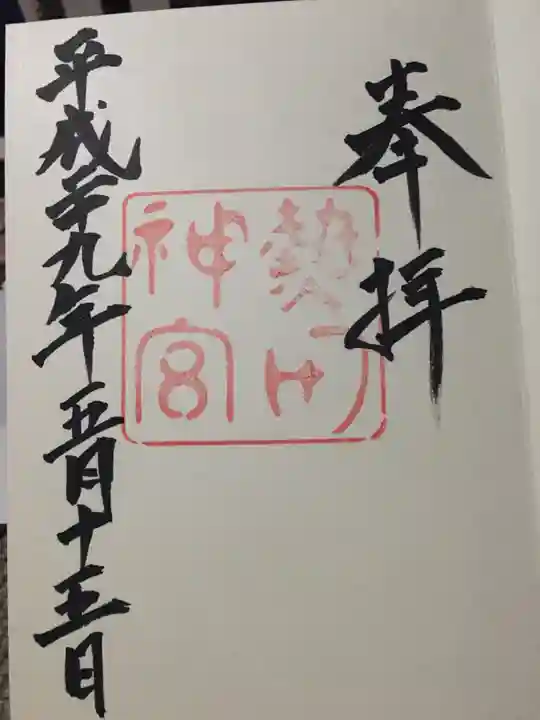 奉拝
熱田
神宮
平成二十九年五月十五日